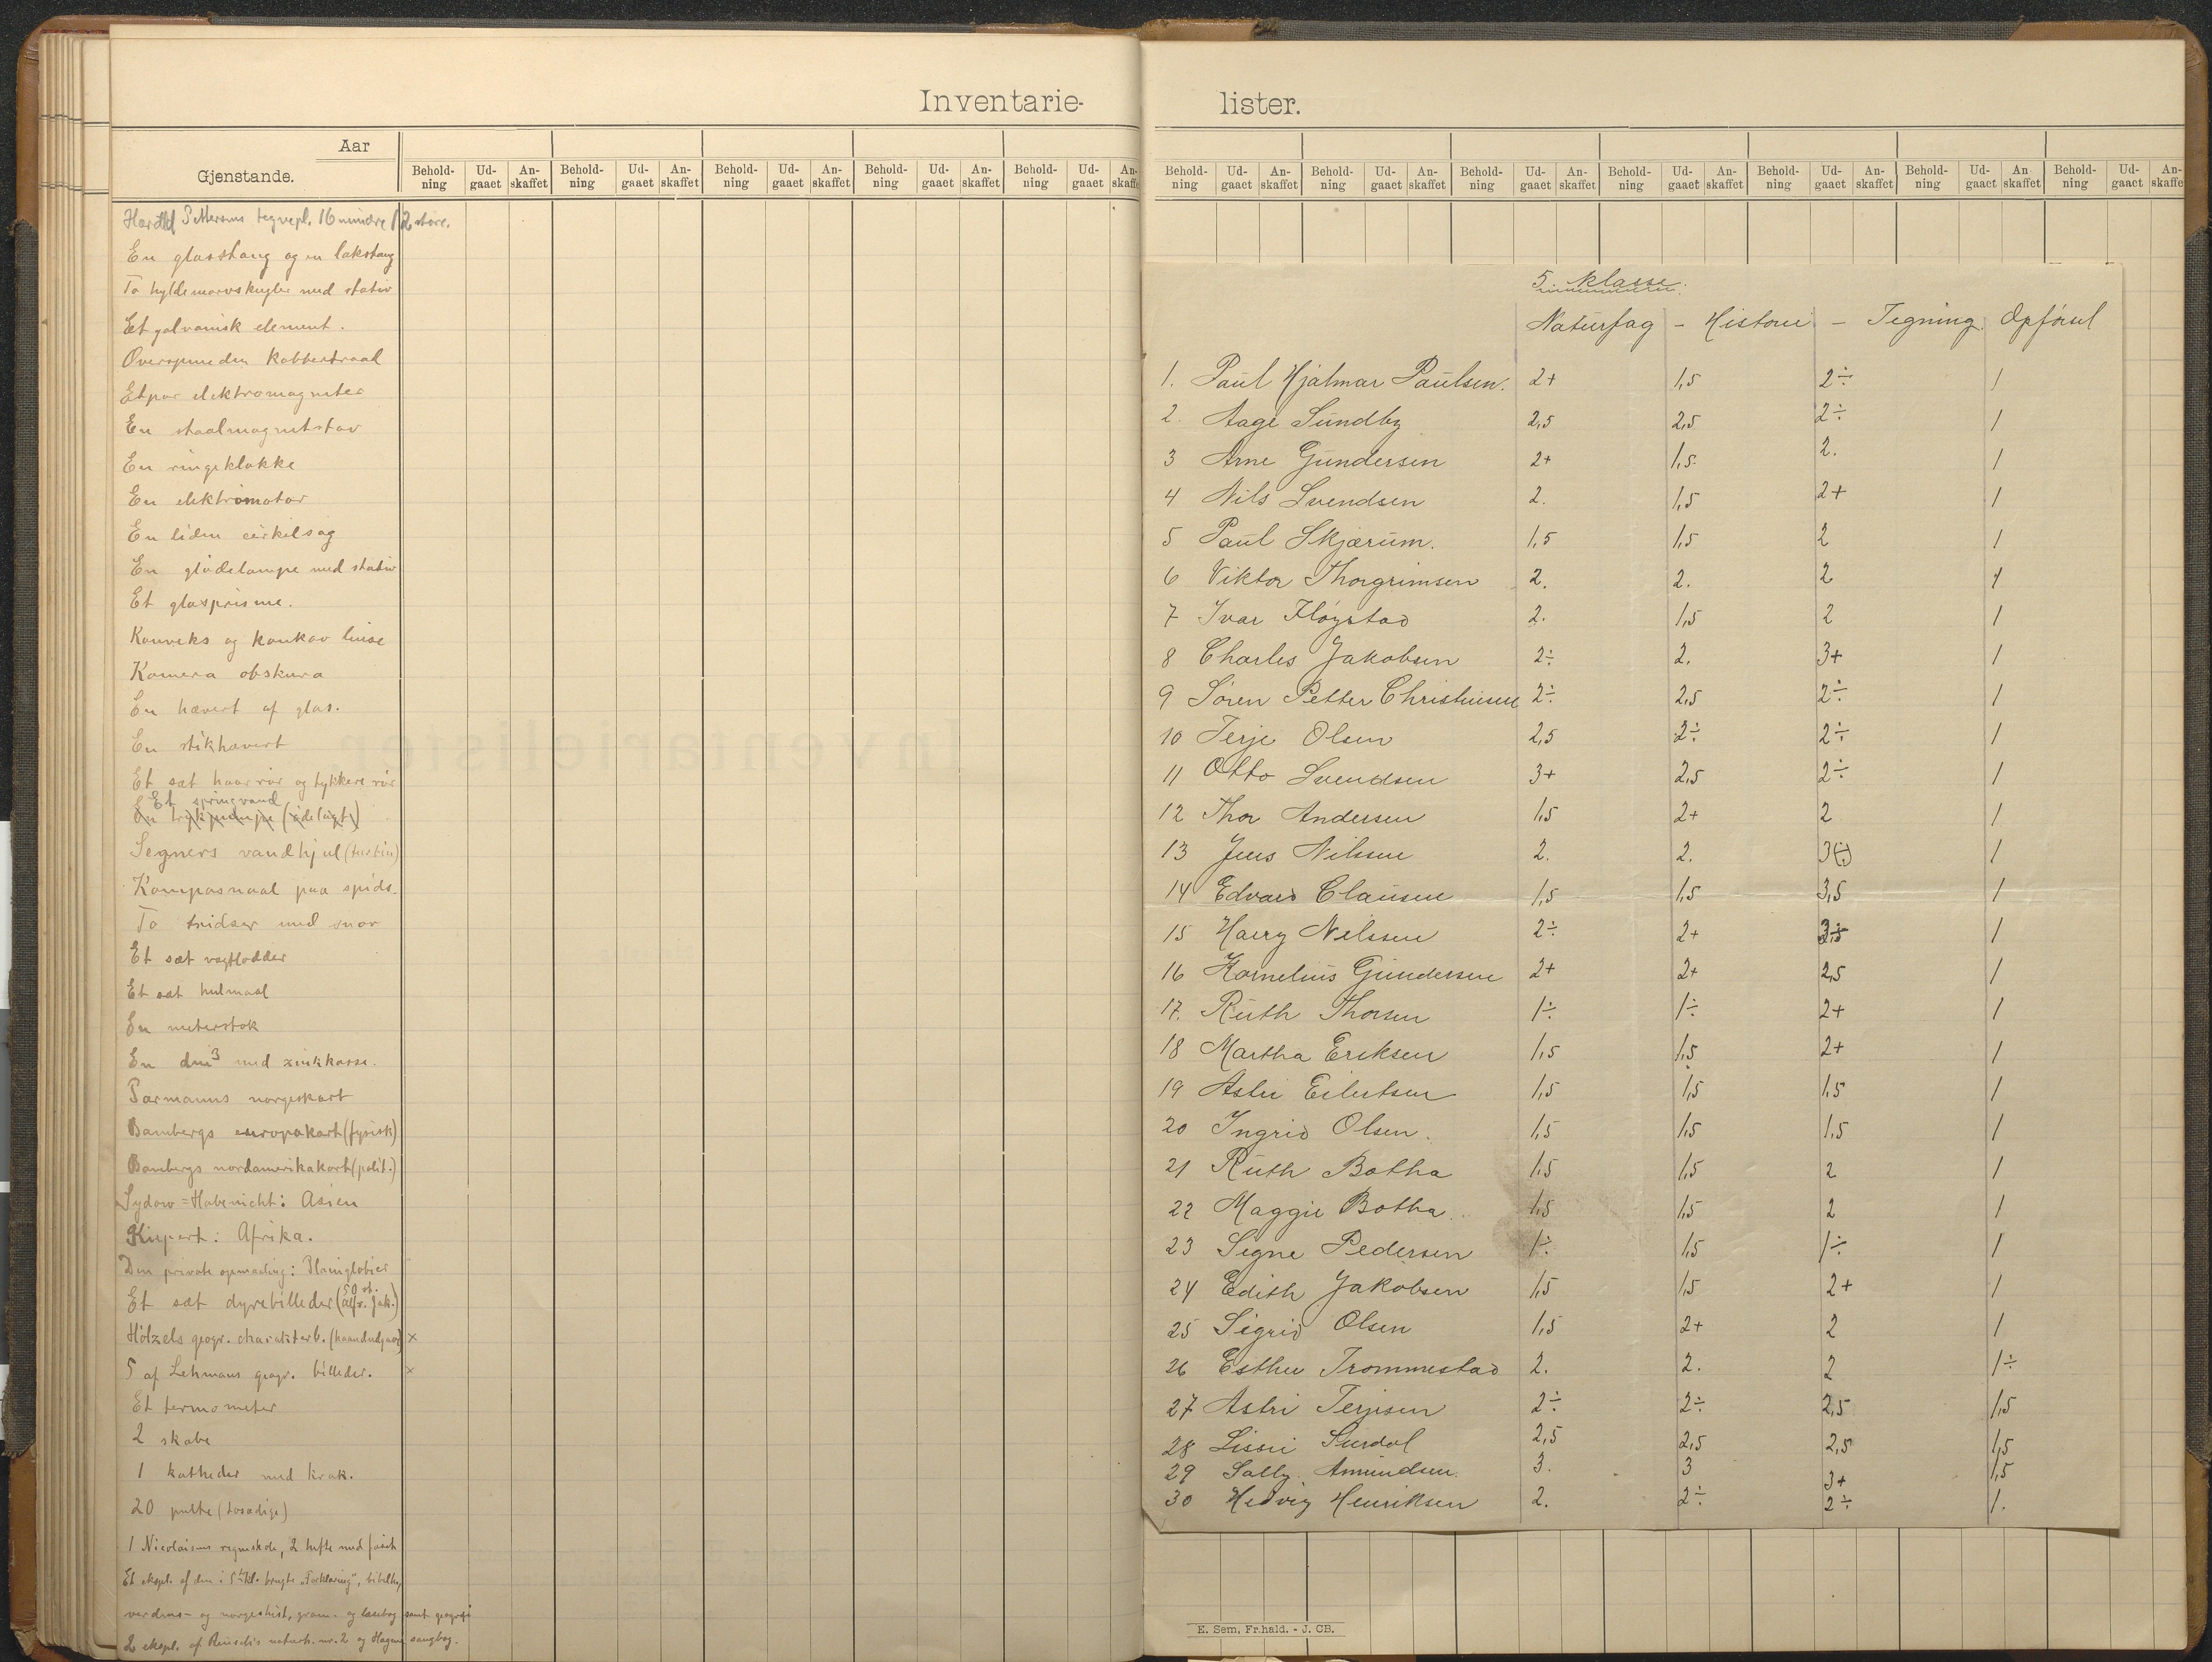 Inventarie-
Aar
Gjenstande.
Behold-ning Ud-gaaet An-skaffet Behold-ning Ud-gaaet An-skaffet Behold-ning Ud-gaaet An-skaffet Behold-ning Ud-gaaet An-skaffet Behold-ning Ud-gaaet An-skaffet
Harald Pettersens tegnepl. 16 mindre 12 store.
En glasstang og en lakstang
To hyldemarvskugler med stativ
Et galvanisk element.
Overspunden kobbertraad
Et par elektromagneter
En staalmagnetstav
En ringeklokke
En elektromotor
En liden cirkelsag
En glødelampe med stativ
Et glasprisme.
Konveks og konkav linse
Kamera obskura
En hævert af glas.
En stikhævert
Et sæt haarrør og tykkere rør
Et springvand
En trykpumpe (ødelagt)
Segners vandhjul (turbin)
Kompasnaal paa spids.
To tridser med snor
Et sæt vægtlodder
Et sæt hulmaal
En meterstok
En dm3 med zinkkasse.
Parmanns norgeskart
Bambergs europakart (fysisk)
Bambergs nordamerikakart (polit.)
Sydow=Habenicht: Asien
Kiepert: Afrika.
Den private opmaaling: Planiglobier
50 st.
Et sæt dyrebilleder (alfr. Jak.)
Hölzels geogr. charakterb. (haandudgave) ×
5 af Lehmans geogr. billeder. ×
Et termometer
2 skabe
1 katheder med krak.
20 pulte (tosædige)
1 Nicolaisens regneskole, 2 hefte med facit
Et ekspl. af den i 5te kl. brugte „Forklaring", bibelh.,
verdens- og norgeshist, gram. og læsebog samt geografi
2 ekspl. af Reusch's naturh. nr. 2 og Hagens sangbog.
lister.
Behold-ning Ud-gaaet An-skaffet Behold-ning Ud-gaaet An-skaffet Behold-ning Ud-gaaet An-skaffet Behold-ning Ud-gaaet An-skaffet Behold-ning Ud-gaaet An-skaffet Behold-ning Ud-gaaet An-skaffet Behold-ning Ud-gaaet An-skaffe
5. klasse.
Naturfag - Historie - Tegning. Opførsel
1. Paul Hjalmar Paulsen. 2+ 1,5 2÷ 1
2. Aage Sundby 2,5 2,5 2÷ 1
3 Arne Gundersen 2+ 1,5. 2. 1
4 Nils Svendsen 2. 1,5 2+ 1
5 Paul Skjærum. 1,5 1,5 2 1
6 Viktor Thorgrimsen 2. 2. 2 1
7 Ivar Fløystad 2. 1,5 2 1
8 Charles Jakobsen 2÷ 2. 3+ 1
9 Søren Petter Christensen 2÷ 2,5 2÷ 1
10 Terje Olsen 2,5 2÷ 2÷ 1
11 Otto Svendsen 3+ 2,5 2÷ 1
12 Thor Andersen 1,5 2+ 2 1
13 Jens Nilssen 2. 2. 3(÷) 1
14 Edvard Clausen 1,5 1,5 3,5 1
15 Harry Nilssen 2÷ 2+ 1
16 Kornelius Gundersen 2+ 2+ 2,5 1
17. Ruth Thorsen 1÷ 1÷ 2+ 1
18 Martha Eriksen 1,5 1,5 2+ 1
19 Astri Eilertsen 1,5 1,5 1,5 1
20 Ingrid Olsen. 1,5 1,5 1,5 1
21 Ruth Botha 1,5 1,5 2 1
22 Maggie Botha. 1,5 1,5 2 1
23 Signe Pedersen 1÷ 1,5 1÷ 1
24 Edith Jakobsen 1,5 1,5 2+ 1
25 Sigrid Olsen 1,5 2+ 2 1
26 Esther Trommestad 2. 2. 2 1÷
27 Astri Terjesen 2÷ 2÷ 2,5 1,5
28 Lissi Surdal 2,5 2,5 2,5 1,5
29 Sally Amundsen. 3. 3 3+ 1,5
30 Hedvig Henriksen 2. 2÷ 2÷ 1.
E. Sem, Fr.hald. - J. CB.